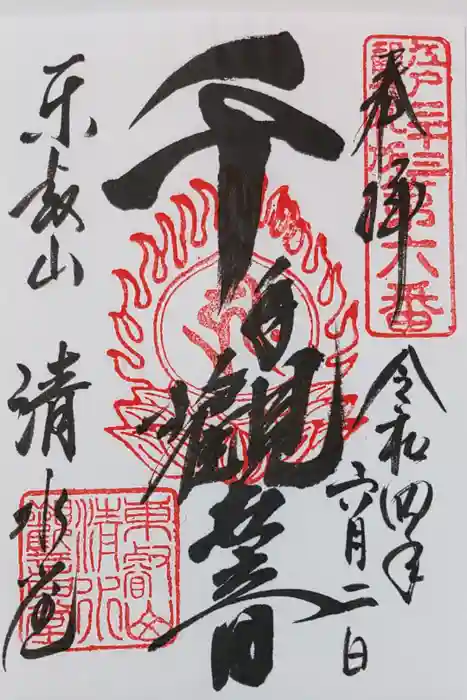 奉拝
江戸三十三
第六番
令和四年
六月二日
千手觀音
東叡山 清水堂
東叡山
清水
觀音堂